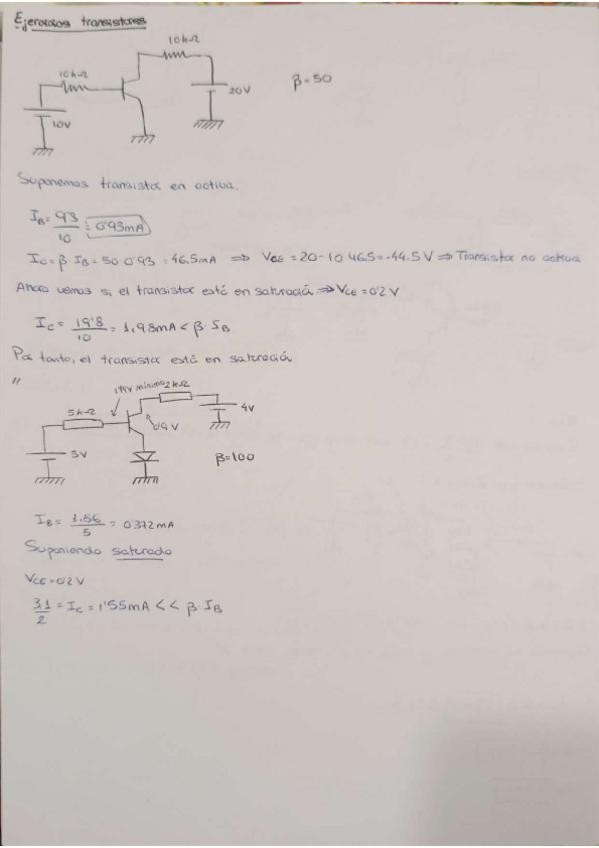 Ejercicios transistores
10k Ω
10k Ω
20V
β=50
10V
Suponemos transistor en activa.
I_B = 9'3/10 = 0'93mA
I_C = β · I_B = 50 0'93 = 46.5mA ⇒ V_CE = 20 - 10 46.5 = -44.5 V ⇒ Transistor no activa
Ahora vemos si el transistor está en saturació ⇒ V_CE = 0'2 V
I_C = 19'8/10 = 1,98mA < β · I_B
Por tanto, el transistor está en saturació
"
mínimo 2kΩ
5kΩ
4V
0,9 V
3V
β=100
I_B = 1.86/5 = 0372mA
Suponiendo saturado
V_CE = 0'2 V
3.1/2 = I_C = 1'55mA < < β · I_B